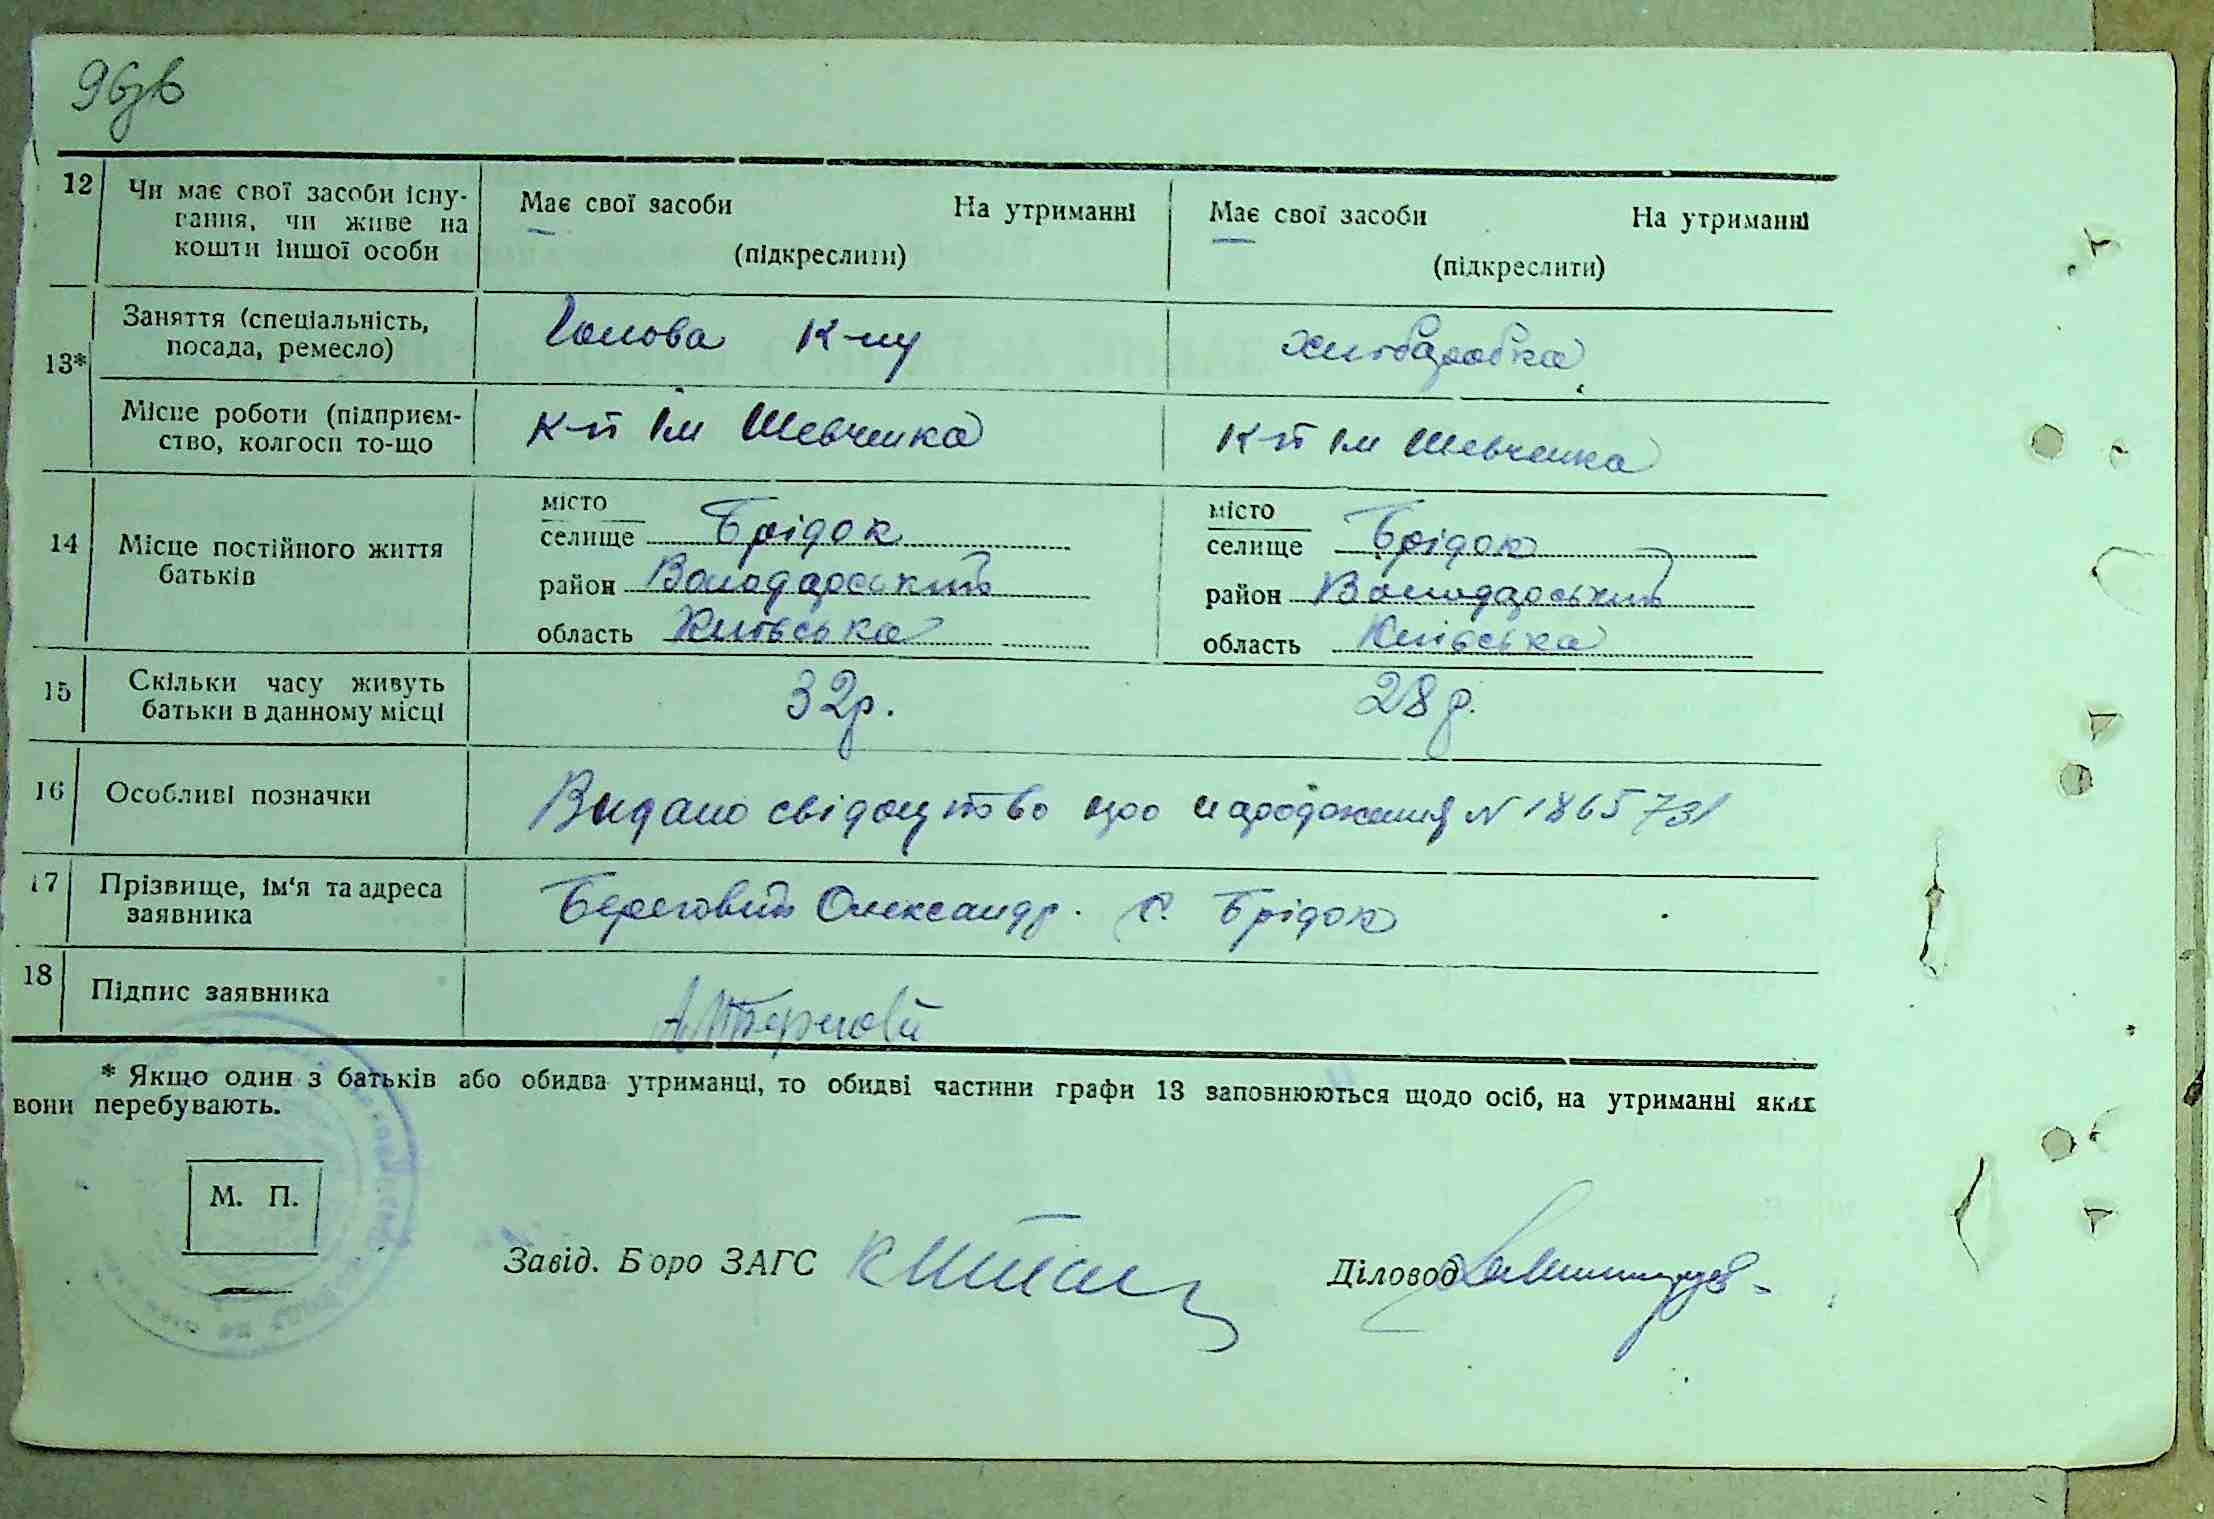 96зв
12 Чи має свої засоби існу-
гання, чи живе на
кошти іншої особи
Має свої засоби На утриманні
(підкреслити)
Має свої засоби На утриманні
(підкреслити)
13*
Заняття (спеціальність,
посада, ремесло)
Голова к-пу
хліборобка
Місце роботи (підприєм-
ство, колгосп то-що
К-п Ім Шевченка
К-п Ім Шевченка
14 Місце постійного життя
батьків
місто
селище Брідок
район Володарський
область Київська
місто
селище Брідок
район Володарський
область Київська
15 Скільки часу живуть
батьки в данному місці
32р.
28р.
16 Особливі позначки
Видано свідоцтво про народження N 1865731
17 Прізвище, ім'я та адреса
заявника
Береговий Олександр. с. Брідок
18 Підпис заявника
* Якщо один з батьків або обидва утриманці, то обидві частини графи 13 заповнюються щодо осіб, на утриманні яких
вони перебувають.
М. П.
Завід. Бюро ЗАГС
Діловод